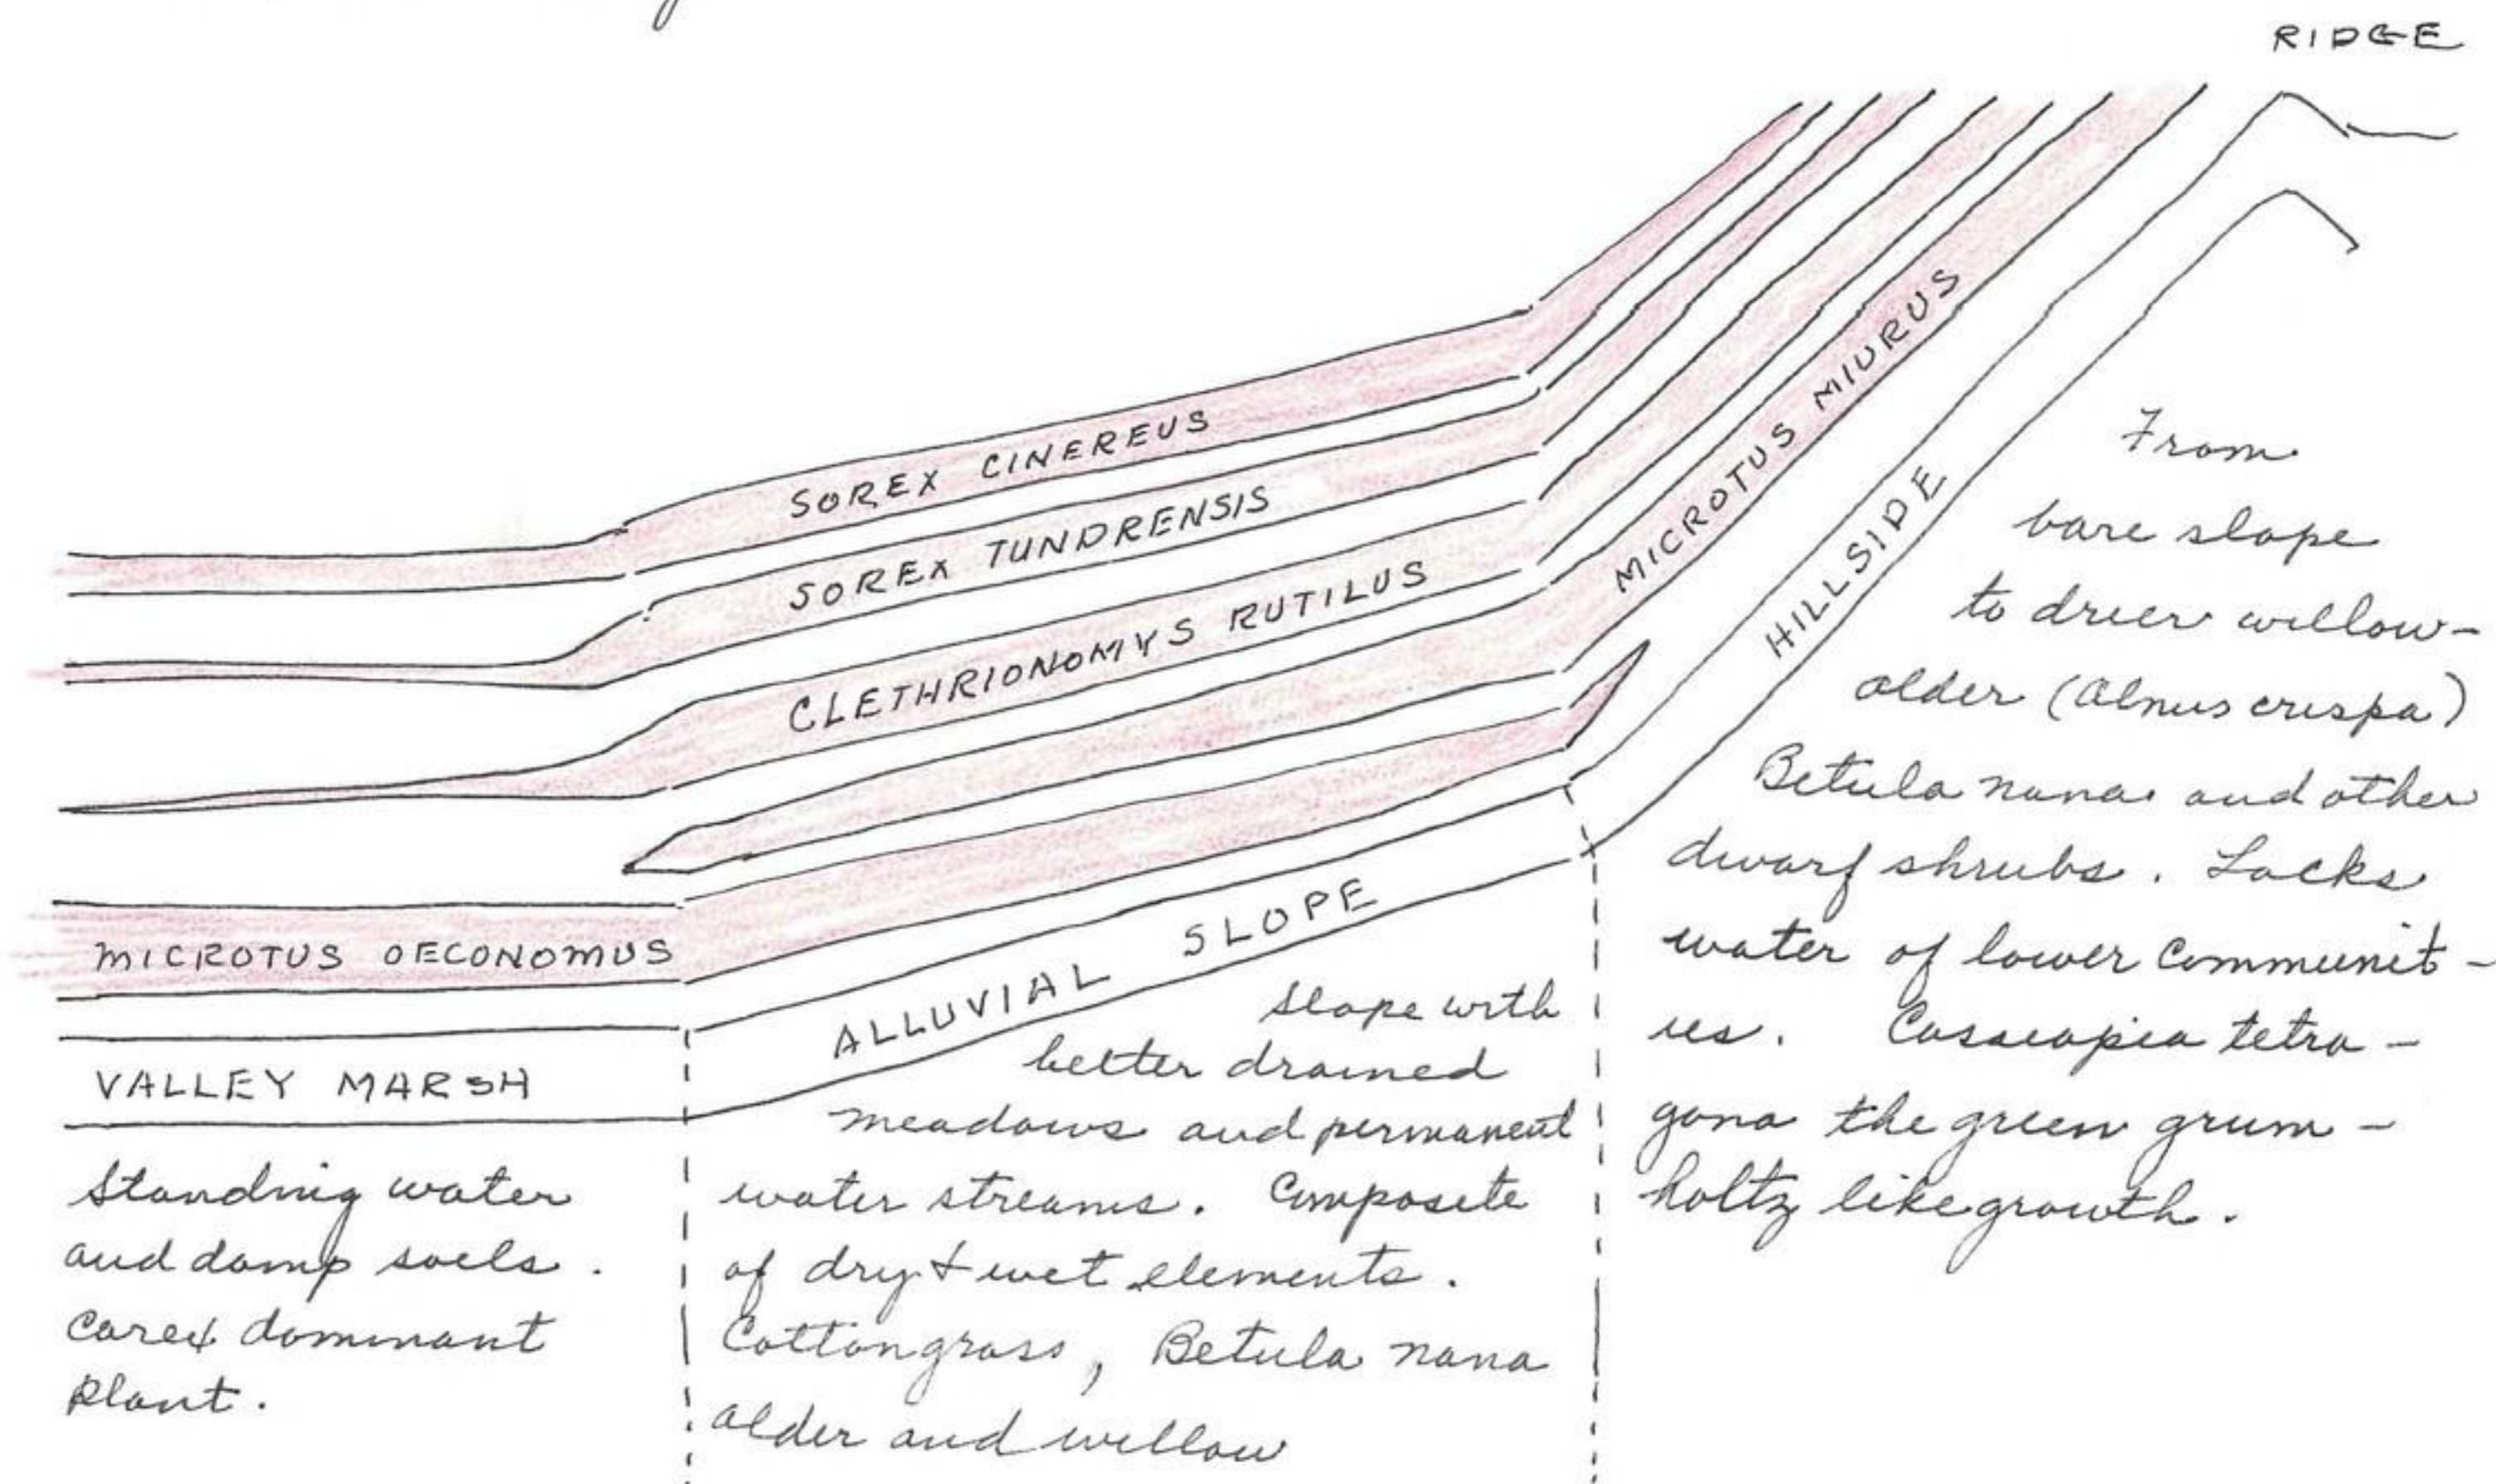 RIDGE
SOREX CINEREUS
SOREX TUNDRENSIS
CLETHRIONOMYS RUTILUS
MICROTUS MIURUS
MICROTUS OECONOMUS
HILLSIDE
ALLUVIAL SLOPE
VALLEY MARSH
Standing water
and damp soils.
Carex dominant
plant.
slope with
better drained
meadows and permanent
water streams. Composite
of dry & wet elements.
Cottongrass, Betula nana
alder and willow
From
bare slope
to drier willow-
alder (Alnus crispa)
Betula nana and other
dwarf shrubs. Lacks
water of lower communit-
ies. Cassiopia tetra-
gona the green grum-
holtz like growth.